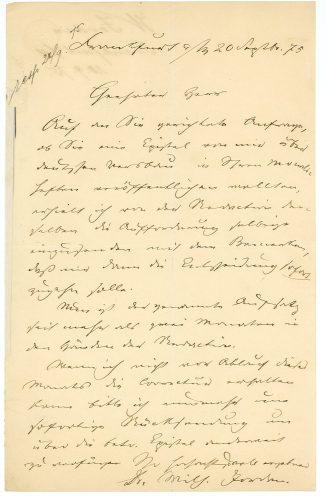 Frankfurt a/M 20 Septbr. 75
Geehrter Herr
Auf die an Sie gerichtete Anfrage,
ob Sie eine Epistel von mir über
deutschen Versbau in Ihren Monats-
heften veröffentlichen wollten,
erhielt ich von der Redaction der-
selben die Aufforderung selbige
einzusenden mit dem Bemerken,
daß mir dann die Entscheidung sofort
zugehn solle.
Nun ist der genannte Aufsatz
seit mehr als zwei Monaten in
den Händen der Redaction.
Wenn ich nicht vor Ablauf dieses
Monats die Correctur erhalten
kann bitte ich nunmehr um
sofortige Rücksendung um
über die betr. Epistel anderweit
zu verfügen
Dr. Wilh. Jordan.